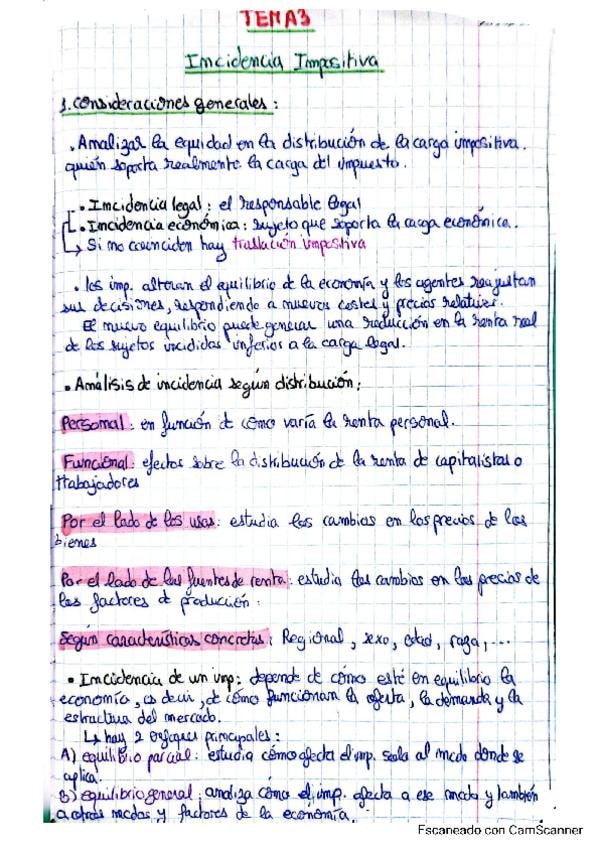 TEMA3
Imcidencia Impositiva
1. Consideraciones generales :
. Analizar la equidad en la distribución de la carga impositiva.
quién soporta realmente la carga del impuesto.
• Imcidencia legal : el responsable legal
• Incidencia económica : sujeto que soporta la carga económica.
↳ Si no coinciden hay traslación impositiva
• los imp. alteran el equilibrio de la economía y los agentes reajustan
sus decisiones, respondiendo a nuevos costes y precios relativos.
El nuevo equilibrio puede generar una reducción en la renta real
de los sujetos incididos inferior a la carga legal.
• Análisis de incidencia según distribución :
Personal : en función d cómo varía la renta personal.
Funcional : efectos sobre la distribución de la renta de capitalistas o
trabajadores
Por el lado de los usos : estudia los cambios en los precios de los
bienes
Por el lado de las fuentes de renta : estudia los cambios en los precios de
los factores d producción .
Según características concretas : Regional, sexo, edad, raza, ...
• Imcidencia de un imp : depende de cómo esté en equilibrio la
economía, es decir, de cómo funcionan la oferta, la demanda y la
estructura del mercado.
↳ hay 2 enfoques principales :
A) equilibrio parcial : estudia cómo afecta el imp. solo al mcdo donde se
aplica.
B) equilibrio general : analiza cómo el imp. afecta a ese mcdo y también
a otros mcdos y factores de la economía.
Escaneado con CamScanner